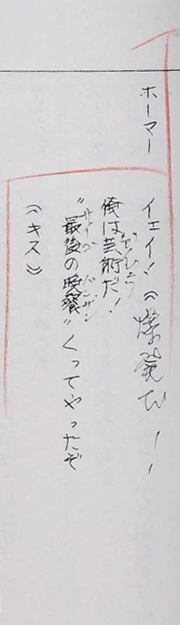 ホーマー　イェイ！《爆発だ！！
俺は芸術だ！
"最後の晩餐"くってやったぞ
《キス》